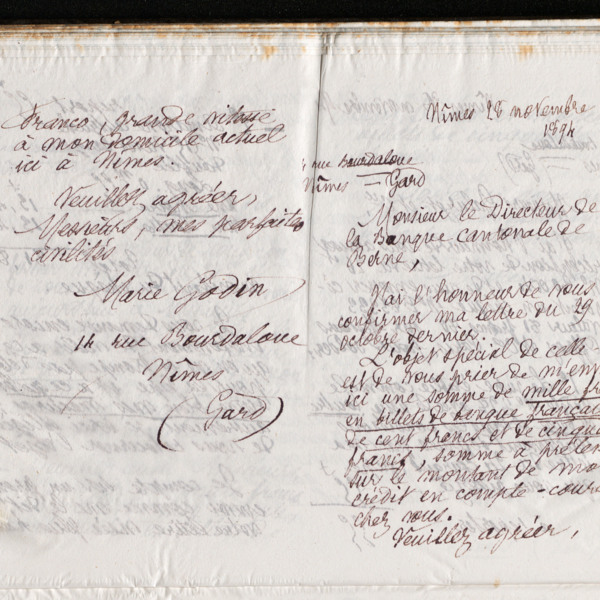 franco, grande vitesse
à mon domicile actuel
ici à Nîmes.
Veuillez agréer,
Messieurs, mes parfaites
civilités
Marie Godin
14 rue Bourdaloue
Nîmes
(Gard)
Nîmes 28 novembre
1894
4 rue Bourdaloue
Nîmes – Gard
Monsieur le Directeur de
la Banque cantonale de
Berne,
J'ai l'honneur de vous
confirmer ma lettre du 29
octobre dernier.
L'objet spécial de celle
est de vous prier de m'env
ici une somme de mille fr
en billets de banque français
de cent francs et de cinqua
francs, somme à prélev
sur le montant de mon
crédit en compte-coura
chez vous.
Veuillez agréer,